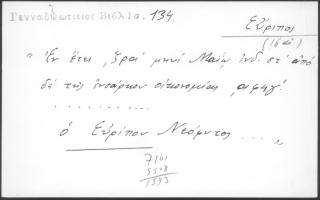 Γενναδωτικιος Βιβλια. 134.
Εὔριπος
(16 αἰ)
" Ἐν ἔτει, ζραϊ μηνὶ Μαΐῳ ἰνδ. στ´ ἀπό
δὲ τῆς ἐνσάρκου οἰκονομίας, αφϟγ´.
..........
ὁ Εὐρίπου Νεόφυτος ... "
7101
5508
1593